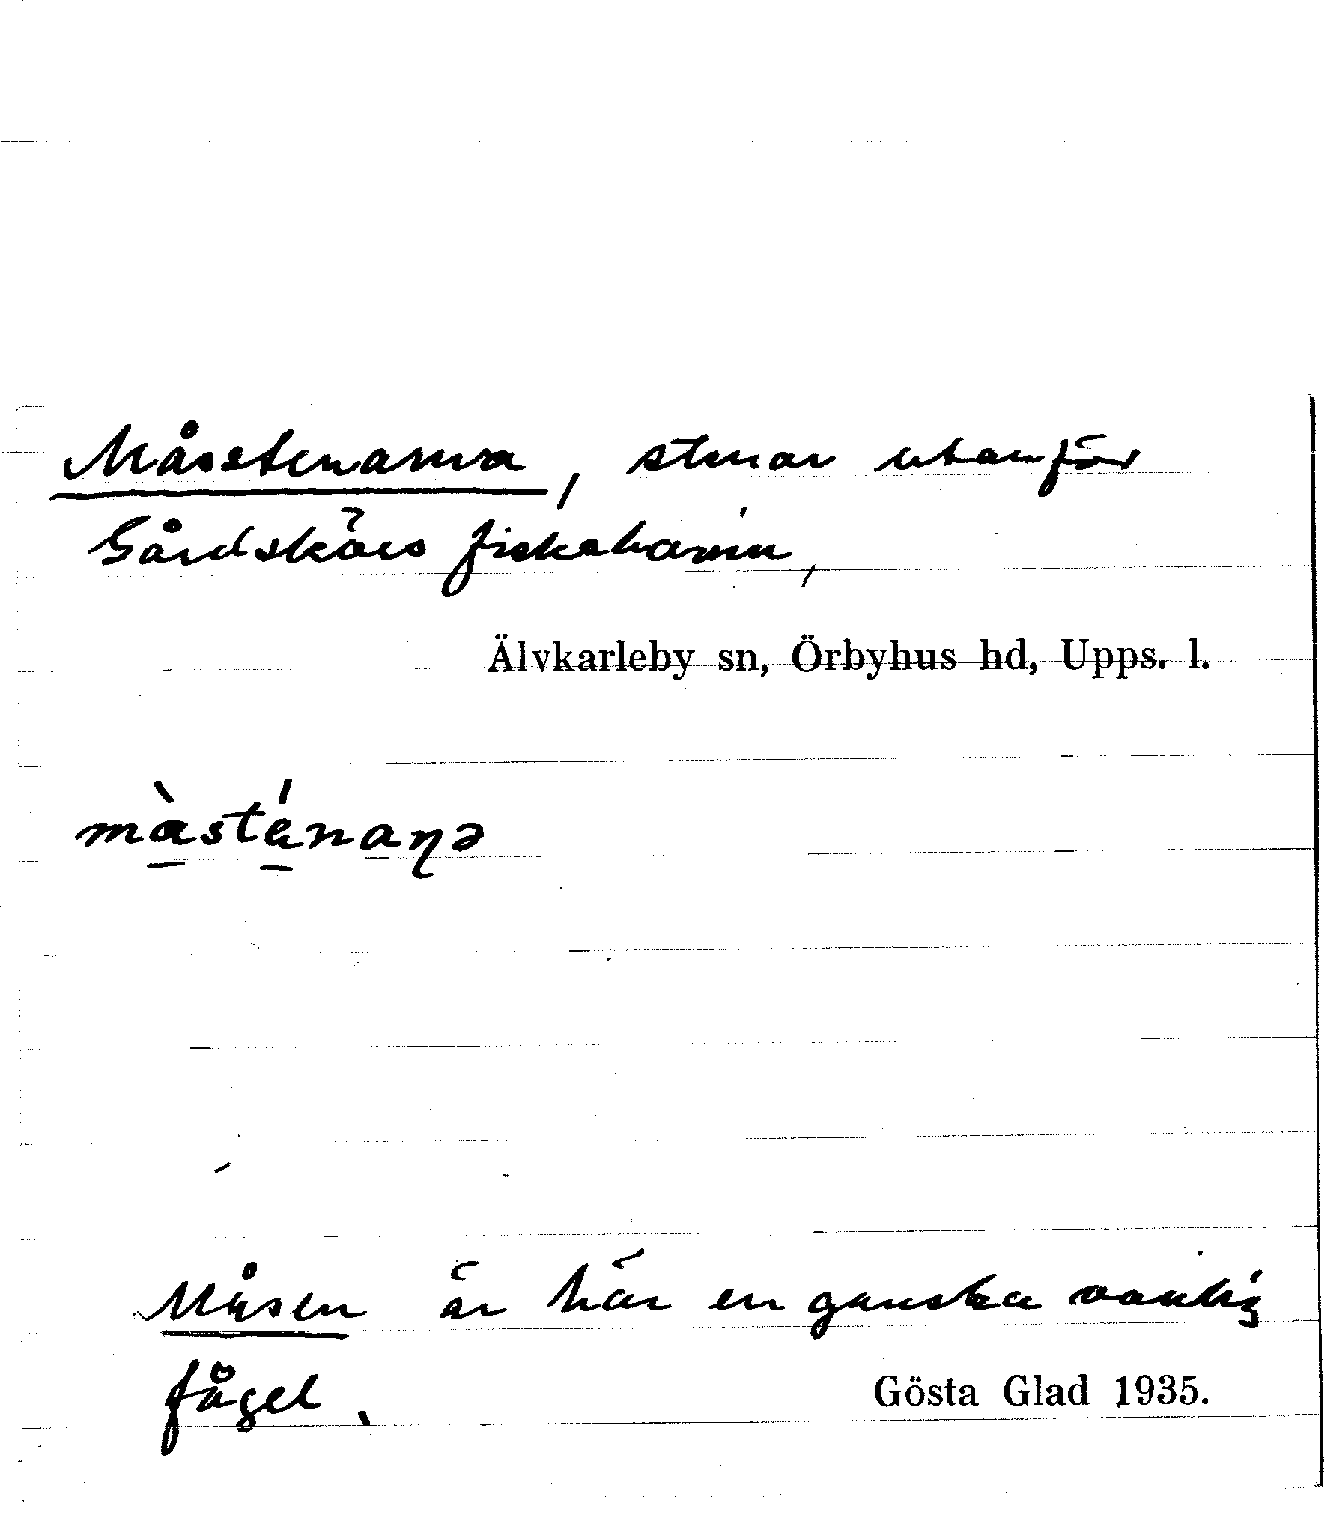 Måsstenarna, stenar utanför
Gårdskärs fiskehamn,
Älvkarleby sn, Örbyhus hd, Upps. l.
màsténaṇə
Måsen är här en ganska vanlig
fågel.
Gösta Glad 1935.